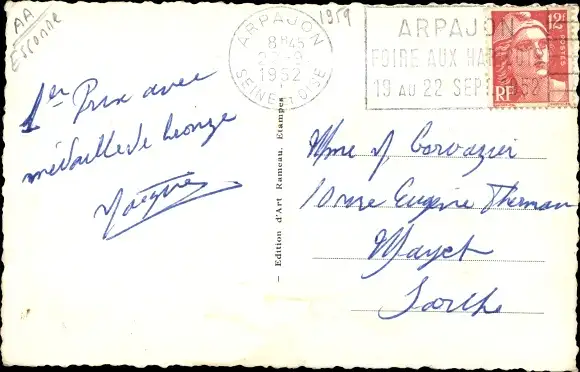 AA
Essonne
1959
ARPAJON
8H45
1952
SEINE-&-OISE
ARPAJON
FOIRE AUX HARICOTS
19 AU 22 SEPT 1952
12F
POSTES
RF
1er Prix avec
médaille de bronze
Mme
10 rue Eugène
Mayet
Sarthe
– Edition d'Art Rameau, Etampes –